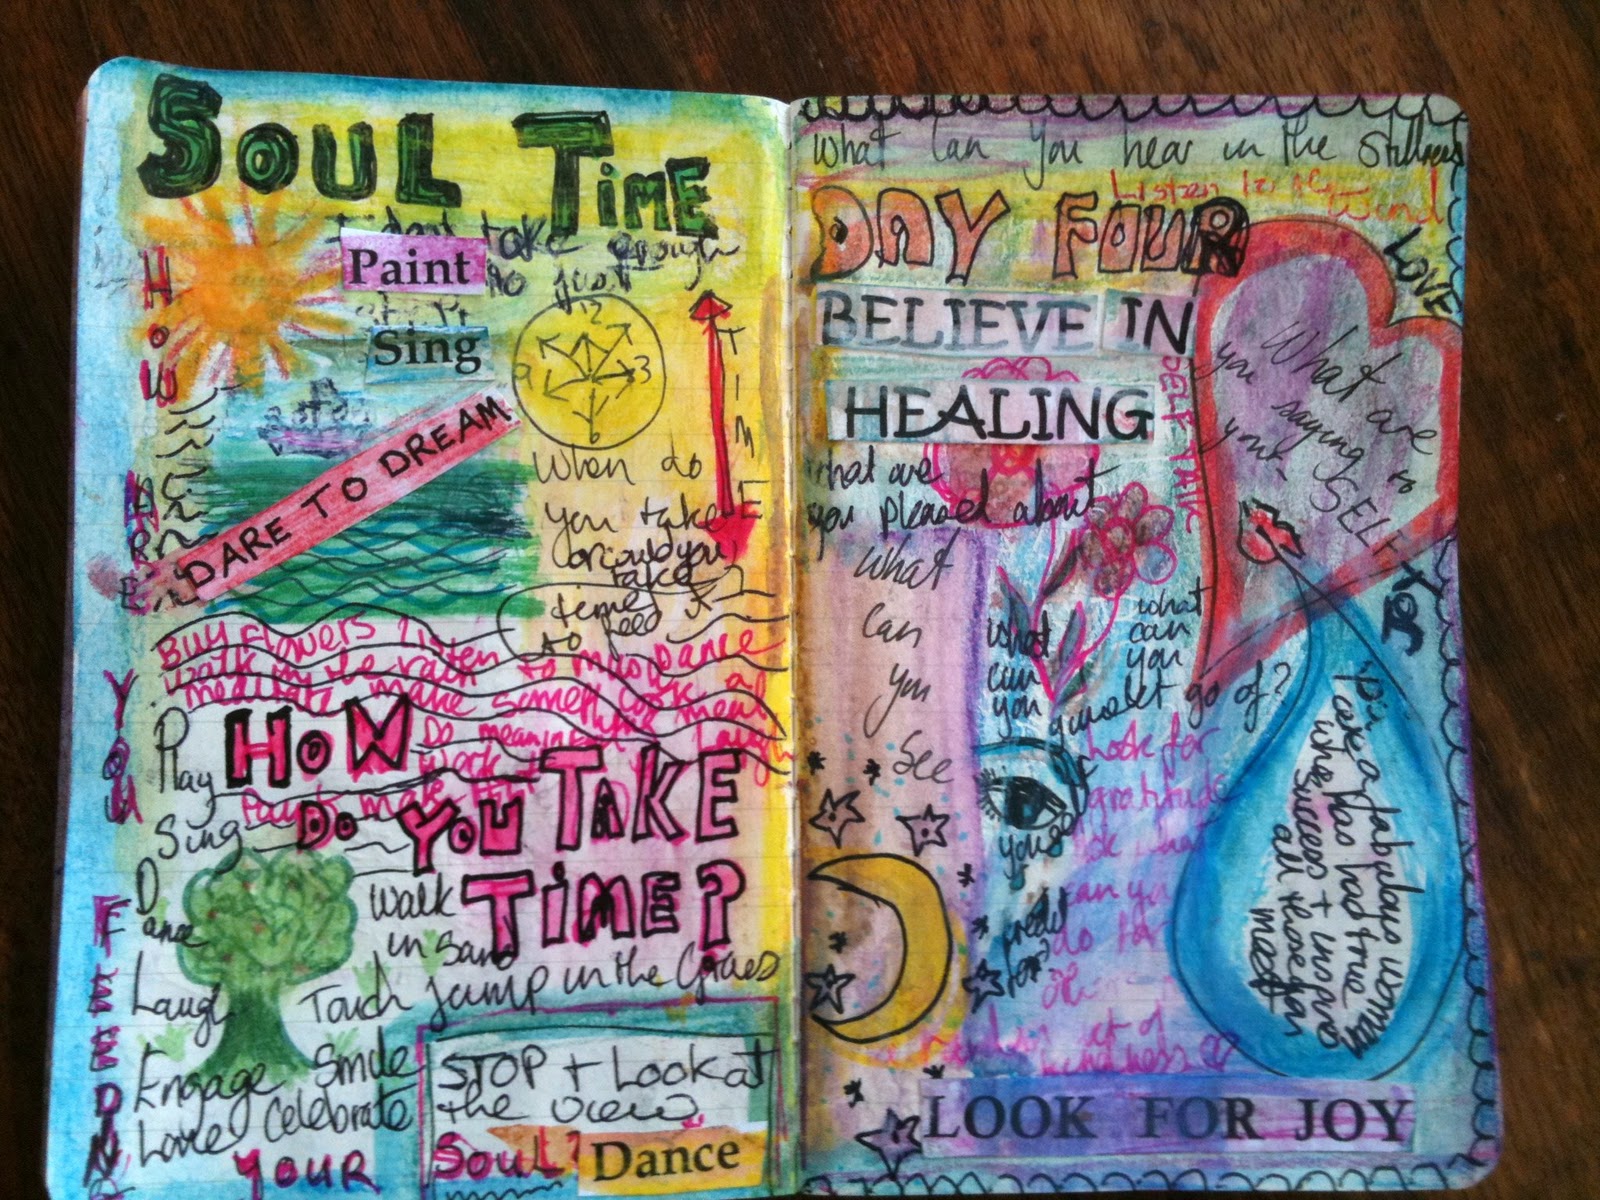 SOUL TIME
I don't take enough
Paint
to just
Sing
12
9 3
6
TIME
DARE TO DREAM
HOW ARE YOU FEEDING YOUR SOUL?
When do
you take
or could you
take
time
to feed it
BUY FLOWERS LISTEN TO MUSIC DANCE
walk in the rain
meditate make something cook a meal
Do meaningful
work
Laugh
Paint make Art
HOW
DO YOU TAKE
TIME?
Play
Sing
Dance
Laugh
Engage
Love
walk
in sand
Touch jump in the
Smile
Celebrate
STOP + Look at
the view
Dance
What can you hear in the Stillness
Listen to the
Wind
DAY FOUR
BELIEVE IN
HEALING
LOVE
SELF TALK
What are
you saying to
your
SELF
what are
you pleased about
what
can
you
see
what
can
you
what
can
you
let go of?
Look for
gratitude
look what
can you
do for
proud
for?
act of
kindness
a fabulous woman
who has had true
success + inspires
all those you
meet
LOOK FOR JOY